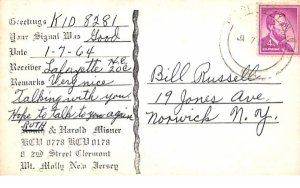 Greetings KID 8281
Your Signal Was Good
Date 1-7-64
Receiver Lafayette HE 20C
Remarks Very nice
Talking with you
Hope to talk to you again
RUTH & Harold Misner
KCD 0778 KCD 0178
8 2nd Street Clermont
Mt. Holly New Jersey
Bill Russell
19 Jones Ave.
Norwick N. Y.